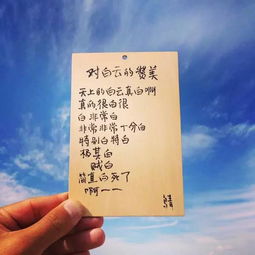 对白云的赞美
天上的白云真白啊
真的很白很
白 非常白
非常非常十分白
特别白特白
极其白
贼白
简直白死了
啊——